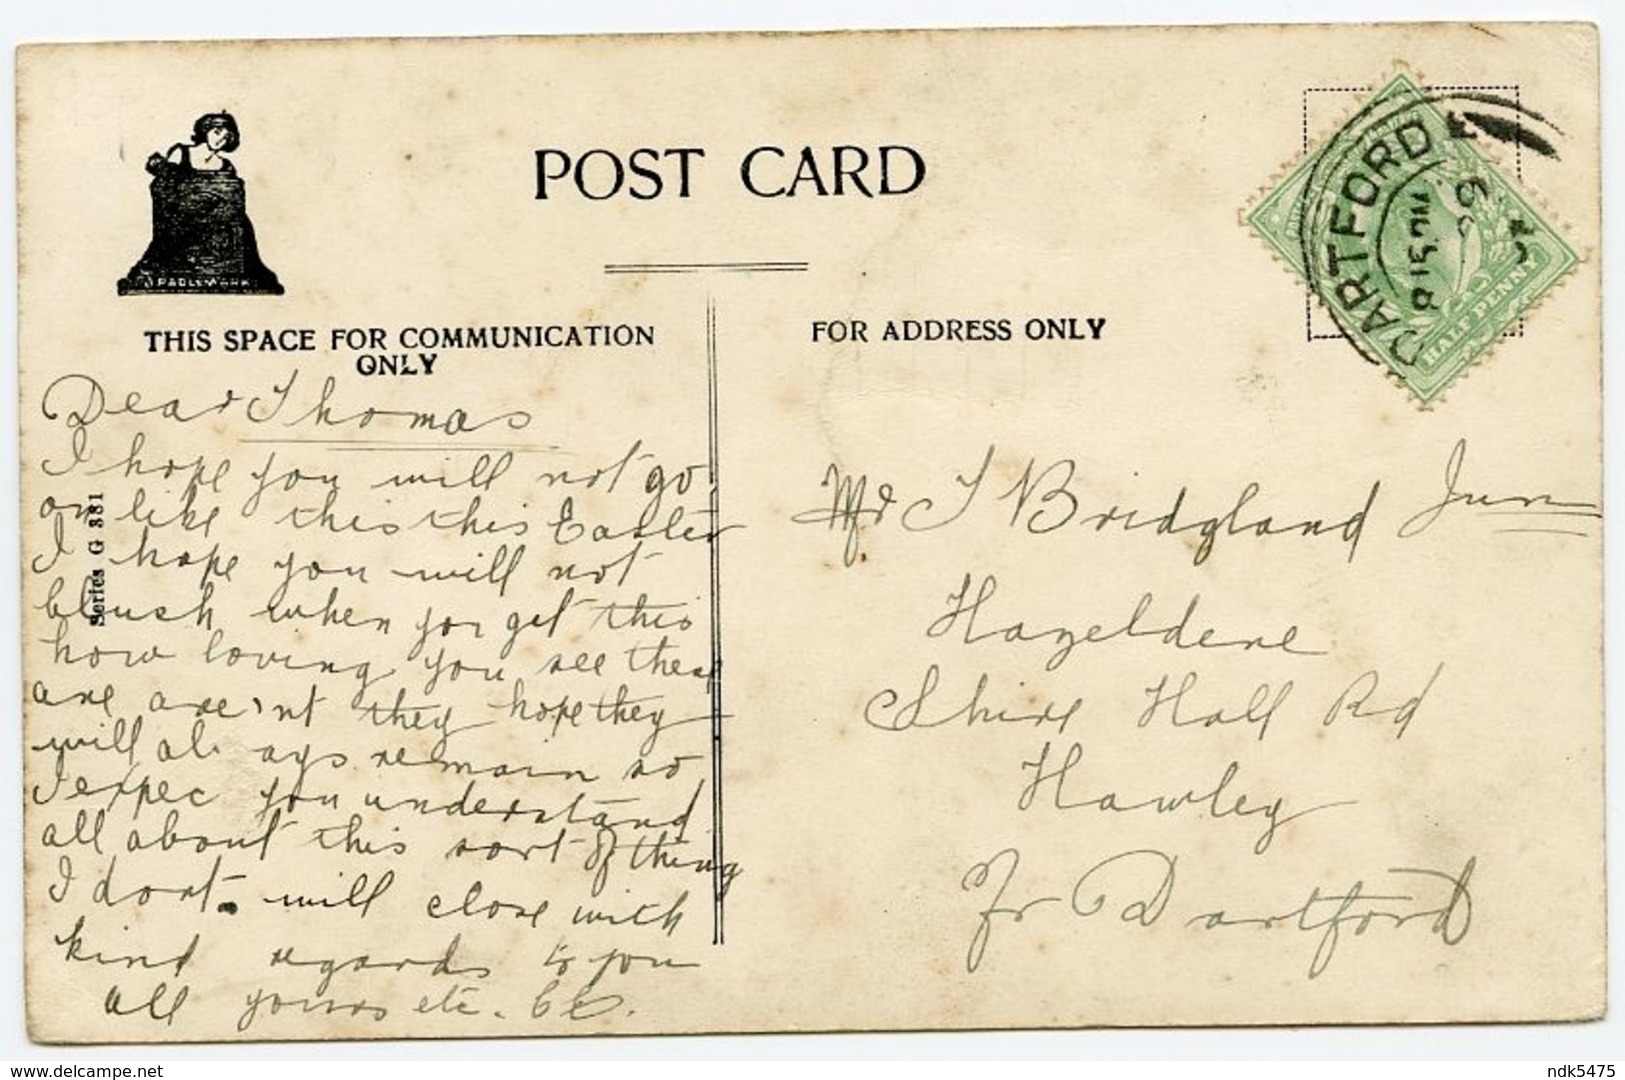 POST CARD
THIS SPACE FOR COMMUNICATION
ONLY
Dear Thomas
I hope you will not go
on like this this Easter
I hope you will not
blush when you get this
how loving you see these
are are'nt they hope they
will always remain so
I expec you understand
all about this sort of thing
I dont. will close with
kind regards to you
all yours etc.
Series G 381
FOR ADDRESS ONLY
DARTFORD
8 15 PM
HALF PENNY
Mr T Bridgland Junr
Hazeldene
Shire Hall Rd
Hawley
Nr Dartford
delcampe.net
ndk5475